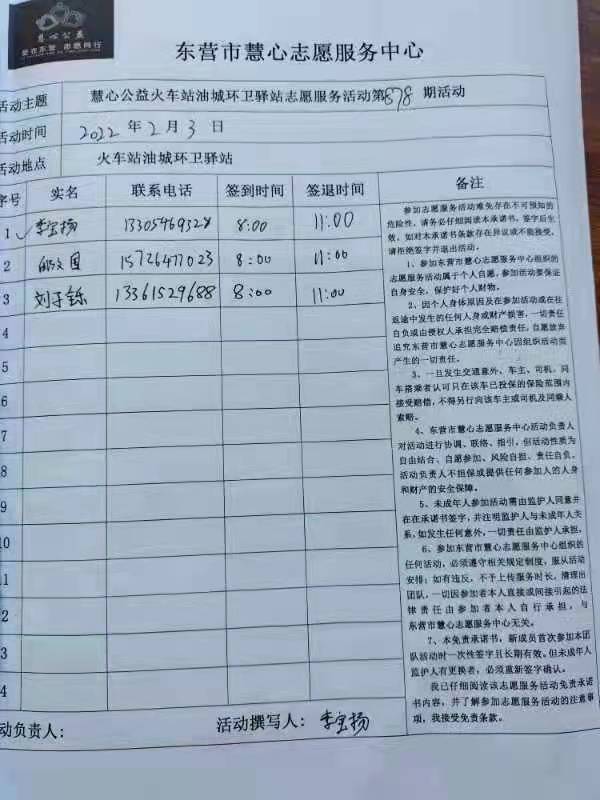 慧心公益
爱在东营 志愿同行
东营市慧心志愿服务中心
活动主题 慧心公益火车站油城环卫驿站志愿服务活动第878期活动
活动时间 2022年2月3日
活动地点 火车站油城环卫驿站
序号 实名 联系电话 签到时间 签退时间 备注
1 李宝扬 8:00 11:00
2 15726477023 8:00 11:00
3 刘子铄 13361529688 8:00 11:00
4
5
6
7
8
9
10
11
2
3
4
参加志愿服务活动难免存在不可预知的
危险性，请务必仔细阅读本承诺书，签字后生
效，如对本承诺书条款存在异议或不能接受，
请拒绝签字并退出活动。
1、参加东营市慧心志愿服务中心组织的
志愿服务活动属于个人自愿，参加活动要保证
自身安全，保护好个人财物。
2、因个人身体原因及在参加活动或在往
返途中发生的任何人身或财产损害，一切责任
自负或由授权人承担完全赔偿责任，自愿放弃
追究东营市慧心志愿服务中心因组织活动而
产生的一切责任。
3、一旦发生交通意外，车主、司机、同
车搭乘者认可只在该车已投保的保险范围内
接受赔偿，不得另行向该车主或司机及同乘人
索赔。
4、东营市慧心志愿服务中心活动负责人
对活动进行协调、联络、指引，但活动性质为
自由结合、自愿参加、风险自担、责任自负，
活动负责人不担保或提供任何参加人的人身
和财产的安全保障。
5、未成年人参加活动需由监护人同意并
在在承诺书签字，并注明监护人与未成年人关
系，如发生任何意外，一切责任由监护人承担，
6、参加东营市慧心志愿服务中心组织的
任何活动，必须遵守相关规定制度，服从活动
安排；如有违反，不予上传服务时长，清理出
团队，一切因参加者本人直接或间接引起的法
律责任由参加者本人自行承担，与
东营市慧心志愿服务中心无关。
7、本免责承诺书，新成员首次参加本团
队活动时一次性签字且长期有效。但未成年人
监护人有更换者，必须重新签字确认。
我已仔细阅读该志愿服务活动免责承诺
书内容，并了解参加志愿服务活动的注意事
项，我接受免责条款。
动负责人： 活动撰写人：李宝扬